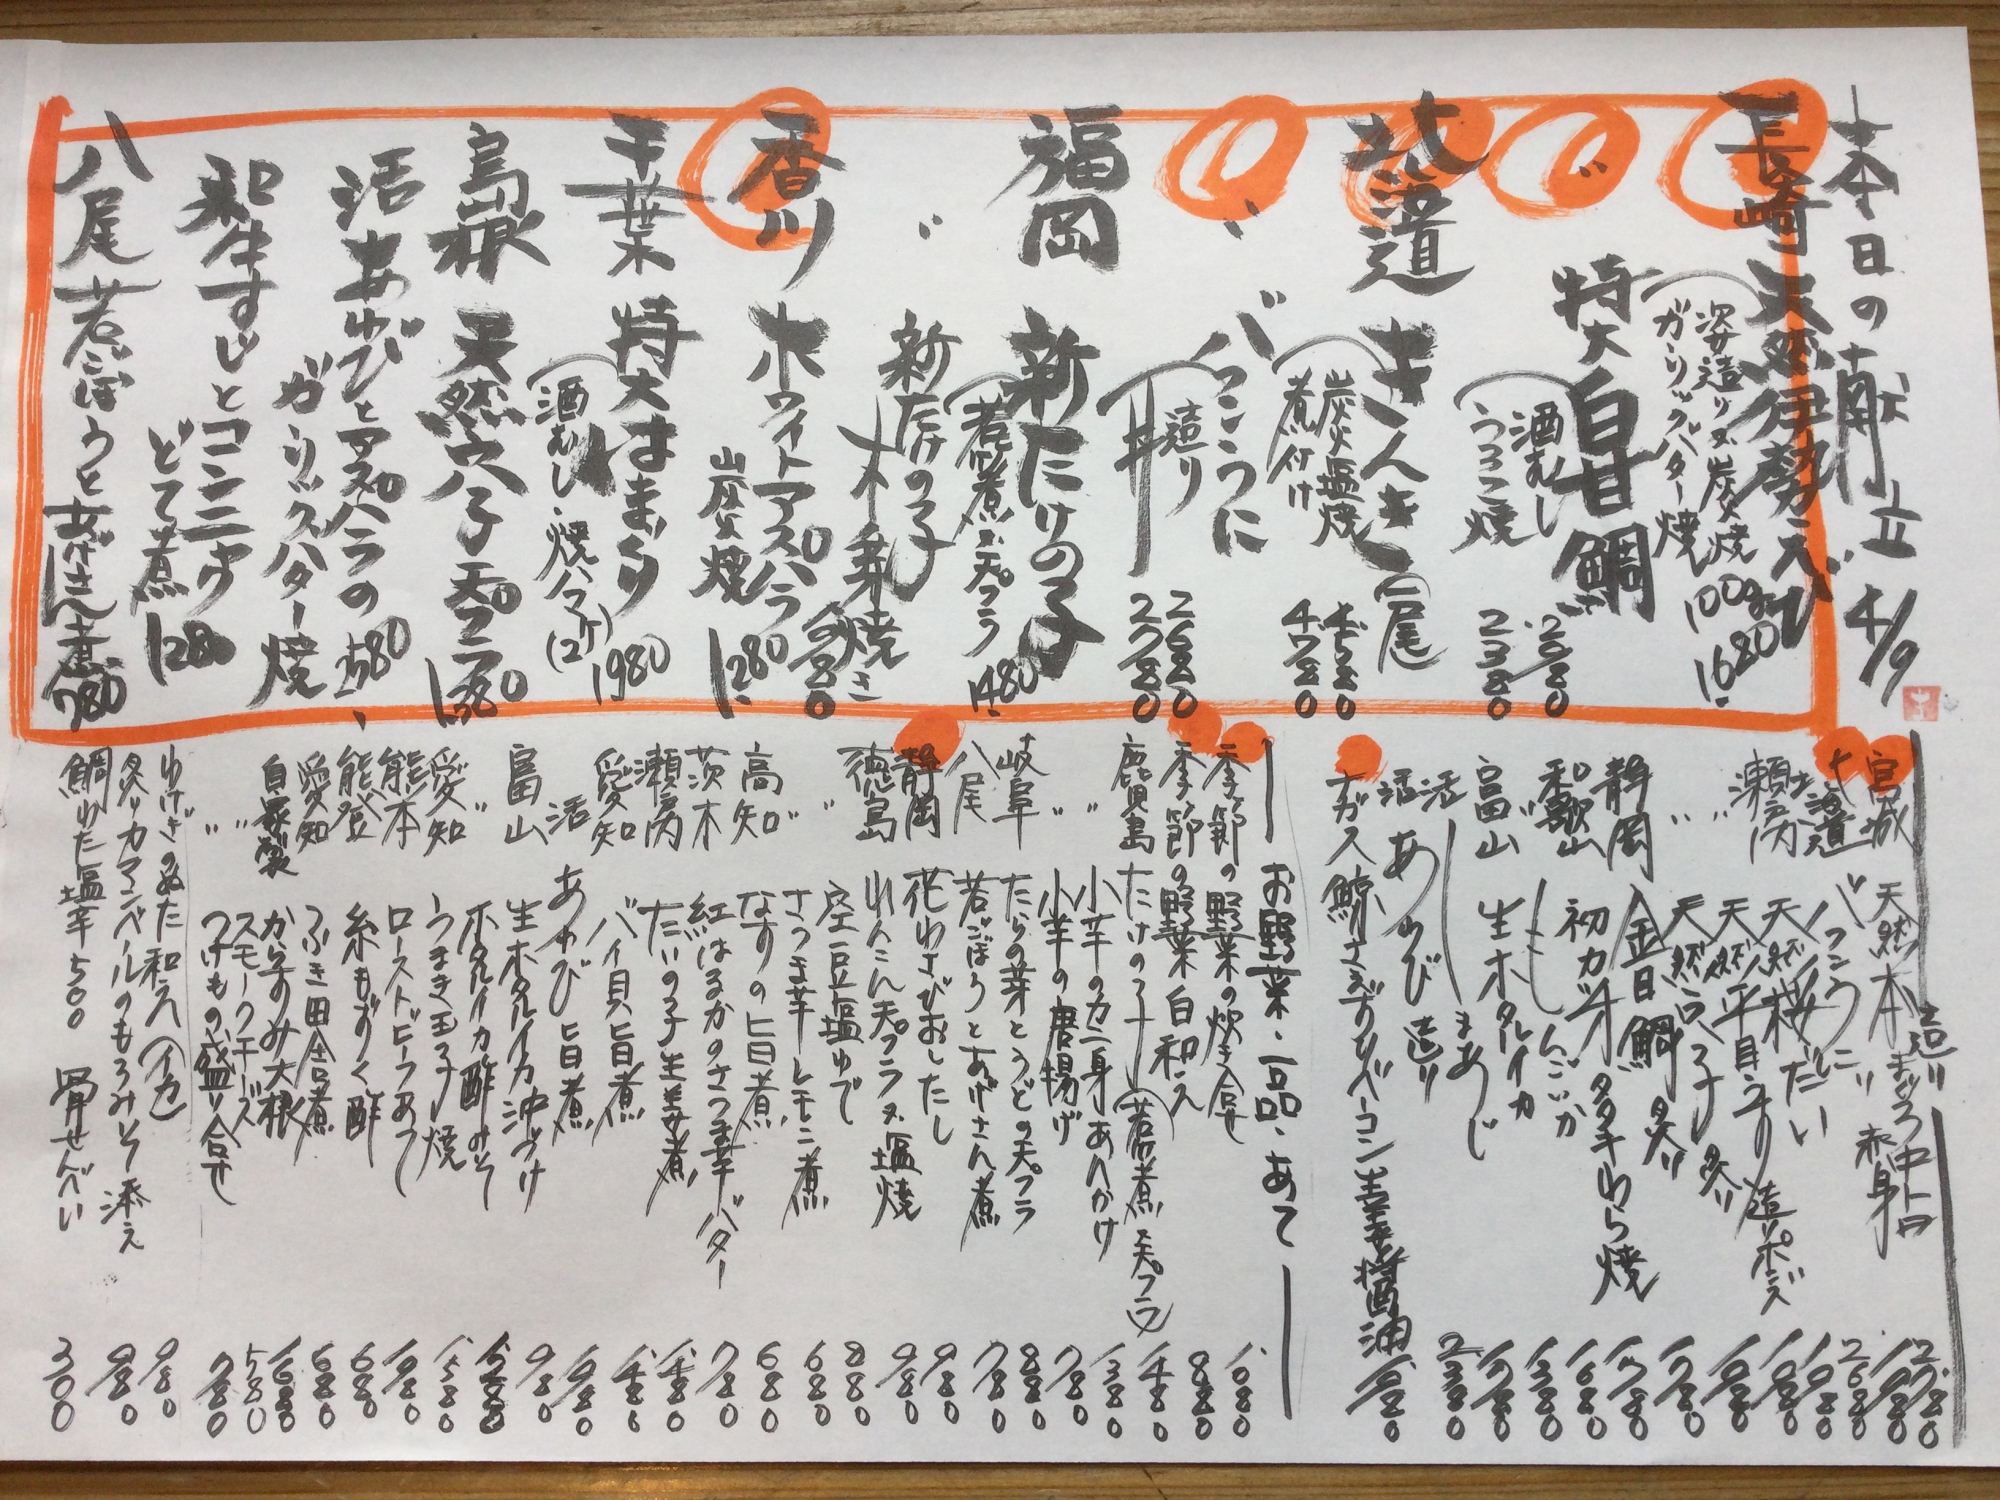 本日の献立 4/9
長崎 天然伊勢えび
姿造り又炭焼 100g 1680.
ガーリックバター焼
〃 特大 白甘鯛
酒むし 2080
うろこ焼 2380
北海道 きんき 一尾
炭火塩焼 4580
煮付け 4780
〃 バフンうに
造り 2680
丼 2780
福岡 新たけの子
若煮又天プラ 1480.
〃 新たけの子
木の芽焼き
香川 ホワイトアスパラ
炭焼 1280.
千葉 特大はまぐり
酒むし・焼ハマ(2ケ) 1980
島根 天然穴子 天プラ 1380
活あわびとアスパラの
ガーリックバター焼
和牛すじとコンニャク
どて煮 1280
八尾 若ごぼうとあげさん煮 780
造り
宮城 天然本まぐろ 中トロ 2780
〃 赤身 1980
北海道 バフンうに 2680
瀬戸内 天然桜だい 1080
〃 天然平目うす造りポンズ
〃 天然穴子 炙り 1780
静岡 金目鯛 炙り 1780
和歌山 初ガツオタタキわら焼 1680
〃 しんこいか 1380
富山 生ホタルイカ
活 まあじ
活 あわび 造り 2380
ナガス鯨さえずりベーコン生姜醤油 1080
お野菜・一品・あて
季節の野菜の炊き合せ 1080
季節の野菜 白和え 880
鹿児島 たけの子(若煮 天プラ) 1480
〃 小芋のカニ身あんかけ 1380
〃 小芋の唐揚げ 780
岐阜 たらの芽とうどの天プラ 880
八尾 若ごぼうとあげさん煮 780
静岡 花わさびおしたし 980
徳島 れんこん天プラ又塩焼 980
〃 空豆塩ゆで 880
〃 さつま芋レモン煮 680
高知 なすの旨煮 680
茨木 紅はるかのさつま芋バター 780
瀬戸内 たいの子生姜煮 1480
愛知 バイ貝旨煮 1480
活 あわび 旨煮 1980
富山 生ホタルイカ沖づけ 980
〃 ホタルイカ酢みそ 1280
愛知 うまき玉子焼 1580
熊本 ローストビーフあて 1980
能登 糸もずく酢 680
愛知 ふき田舎煮 680
自家製 からすみ大根 1680
〃 スモークチーズ 580
〃 つけもの盛り合せ 780
わけぎのぬた和え(イカ) 980
炙りカマンベールのもろみそ添え 980
鯛わた塩辛 500 骨せんべい 300